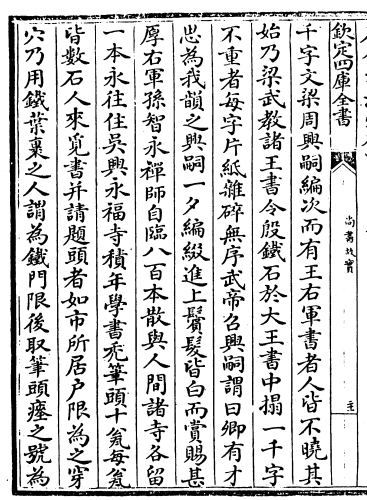 欽定四庫全書
尚書故實
千字文梁周興嗣編次而有王右軍書者人皆不曉其
始乃梁武教諸王書令殷鐵石於大王書中搨一千字
不重者每字片紙雜碎無序武帝召興嗣謂曰卿有才
思為我韻之興嗣一夕編綴進上鬢髮皆白而賞賜甚
厚右軍孫智永禪師自臨八百本散與人間諸寺各留
一本永往住吳興永福寺積年學書禿筆頭十瓮每瓮
皆數石人來覓書并請題頭者如市所居戶限為之穿
穴乃用鐵葉裹之人謂為鐵門限後取筆頭瘞之號為